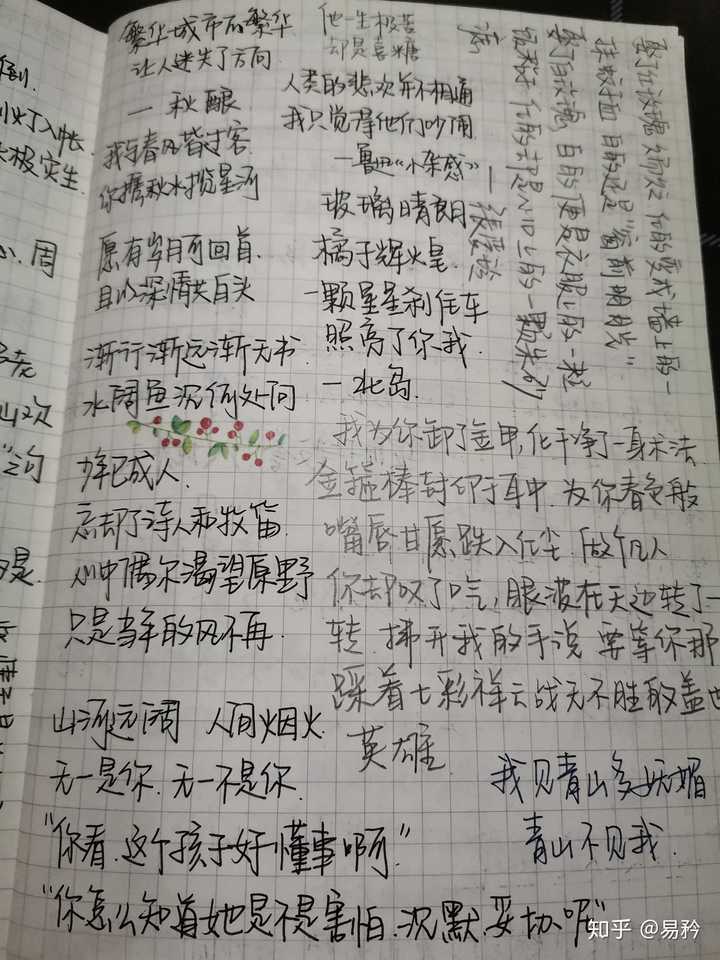 繁华城市的繁华
让人迷失了方向
一秋酿
我与春风皆过客
你携秋水揽星河
愿有岁月可回首
且以深情共白头
渐行渐远渐无书
水阔鱼沉何处问
少年已成人
忘却了诗人和牧笛
心中偶尔渴望原野
只是当年的风不再
山河远阔 人间烟火
无一是你 无一不是你
“你看,这个孩子好懂事啊”
“你怎么知道她是不是害怕.沉默.妥协呢”
他一生极苦
却是喜糖
人类的悲欢并不相通
我只觉得他们吵闹
—鲁迅《小杂感》
玻璃晴朗
橘子辉煌
一颗星星刹住车
照亮了你我
—北岛
我为你卸了金甲,化干净了一身术法
金箍棒封印于耳中.为你眷
嘴唇甘愿跌入红尘.做个凡人
你却叹了口气,眼波在天边转了一
转.拂开我的手说 要等你那
踩着七彩祥云战无不胜的盖世
英雄
我见青山多妩媚
青山不见我
娶了红玫瑰 红的变成墙上的一
抹蚊子血 白的还是“窗前明月光”
娶了白玫瑰,白的便是衣服上的一粒
饭粘子 红的却是心口上的一颗朱砂
—張愛玲
痣
倒
入帐
极实生
周
山欢
知乎 @易矜